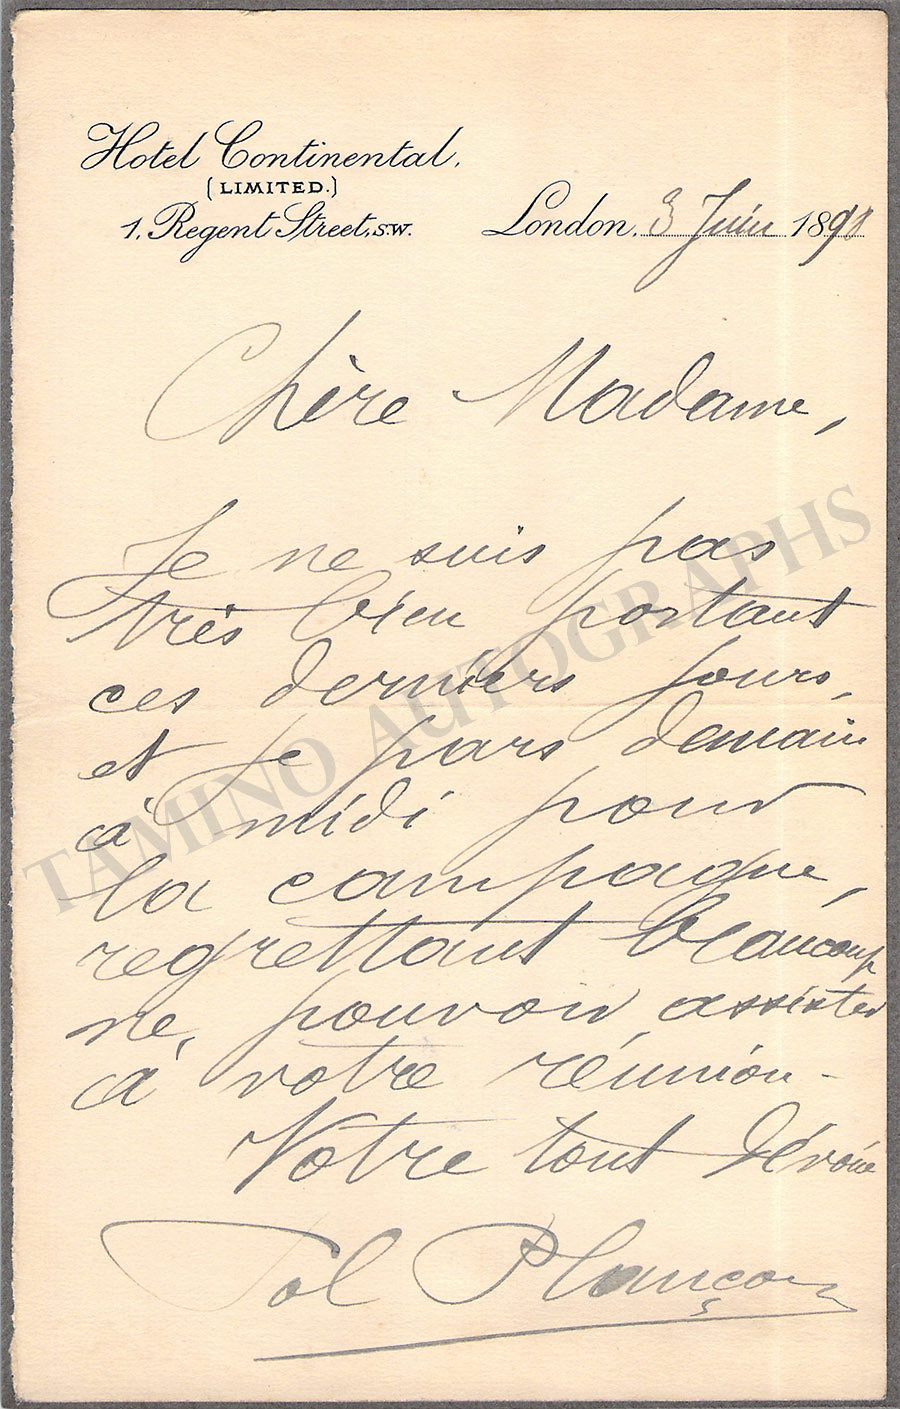 Hotel Continental,
(LIMITED.)
1, Regent Street, S.W.
London, 3 Juin 1891
Chère Madame,
Je ne suis pas
très bien portant
ces derniers jours,
et je pars demain
à midi pour
la campagne,
regrettant beaucoup
ne pouvoir assister
à votre réunion -
Votre tout dévoué
Pol Plançon
TAMINO AUTOGRAPHS